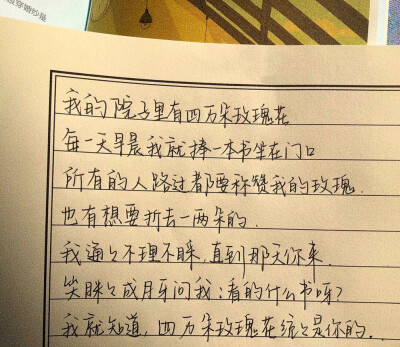 穿婚纱是
我的院子里有四万朵玫瑰花
每一天早晨我就捧一本书坐在门口
所有的人路过都要称赞我的玫瑰.
也有想要折去一两朵的.
我通々不理不睬.直到那天你来.
笑眯々成月牙问我:看的什么书呀?
我就知道,四万朵玫瑰花统々是你的...